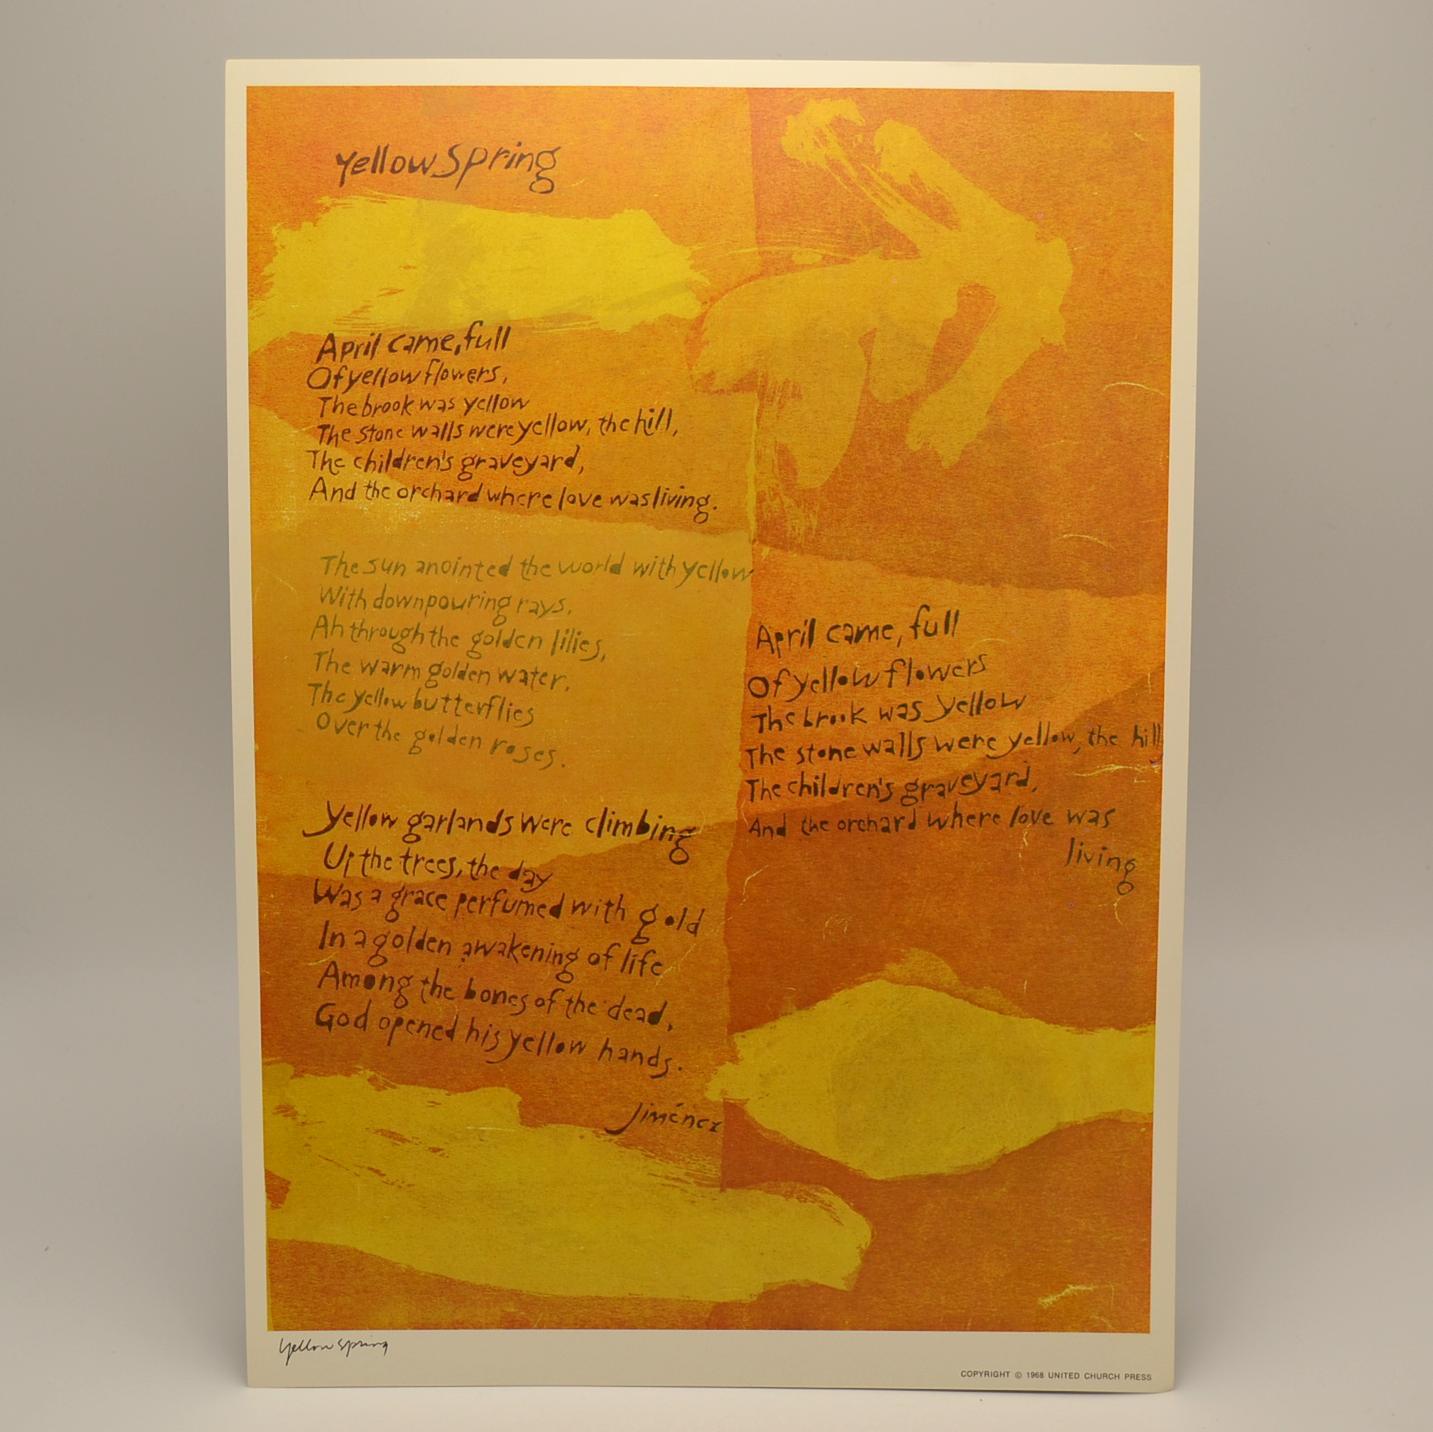 Yellow Spring
April came, full
Of yellow flowers,
The brook was yellow
The stone walls were yellow, the hill,
The children's graveyard,
And the orchard where love was living.
The sun anointed the world with yellow
With downpouring rays.
Ah through the golden lilies,
The warm golden water.
The yellow butterflies
Over the golden roses.
Yellow garlands were climbing
Up the trees, the day
Was a grace perfumed with gold
In a golden awakening of life
Among the bones of the dead,
God opened his yellow hands.
Jiménez
April came, full
Of yellow flowers
The brook was yellow
The stone walls were yellow, the hill
The children's graveyard,
And the orchard where love was
living
Yellow Spring
COPYRIGHT © 1968 UNITED CHURCH PRESS